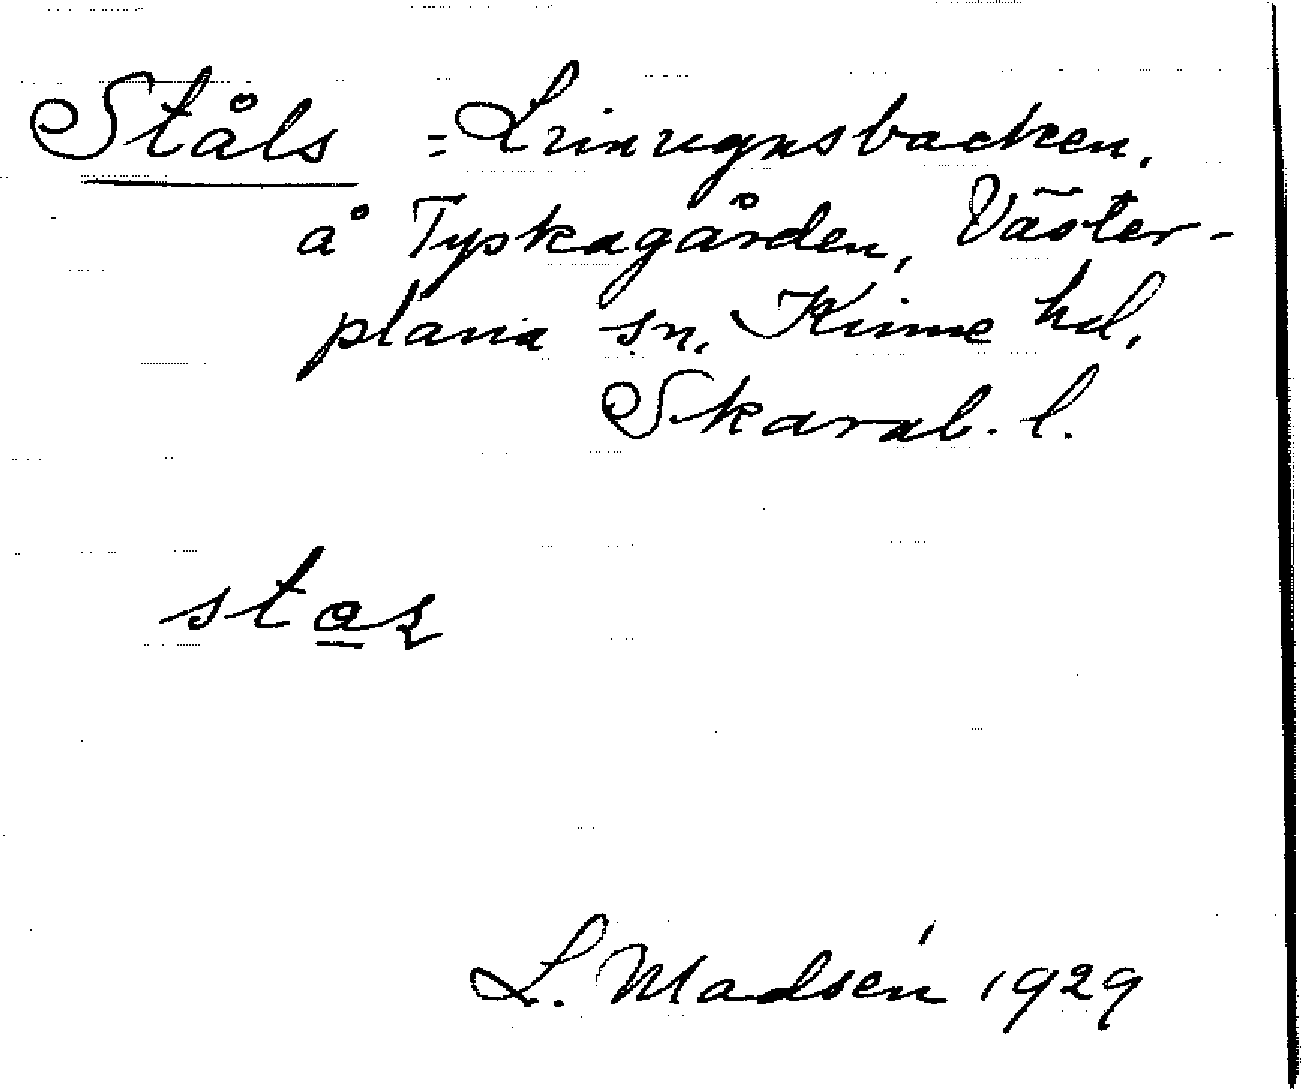 Ståls = Linugnsbacken,
å Tyskagården, Väster-
plana sn, Kinne hd,
Skarab. l.
L. Madsén 1929